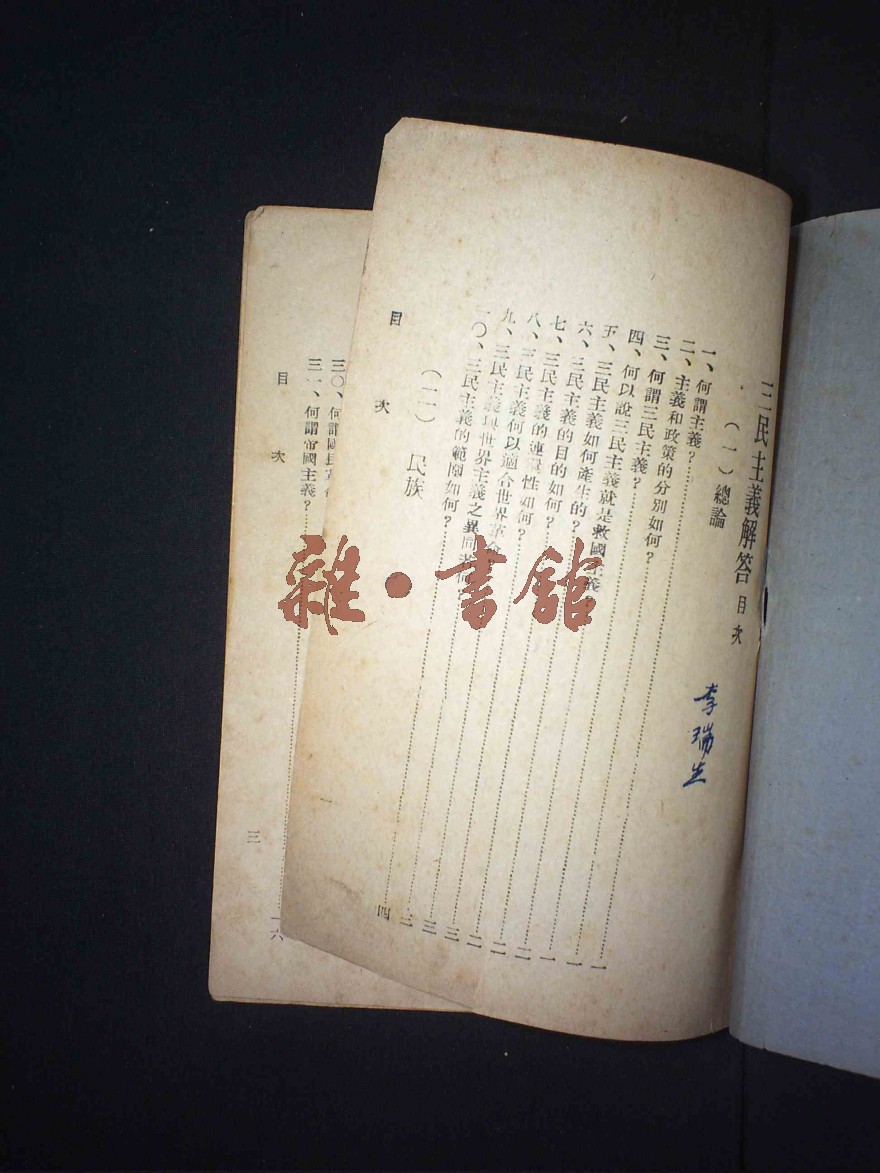 三民主義解答 目次
李瑞生
（一）總論
一、何謂主義？……一
二、主義和政策的分別如何？……一
三、何謂三民主義？……一
四、何以說三民主義就是救國主義……二
五、三民主義如何產生的？……二
六、三民主義的目的如何？……二
七、三民主義的連環性如何？……二
八、三民主義何以適合世界……三
九、三民主義與世界主義之異同……三
一〇、三民主義的範圍如何？……三
（二）民族
目 次
四
三〇、何謂國民革命
三一、何謂帝國主義？……一六
目 次
三
雜·書館